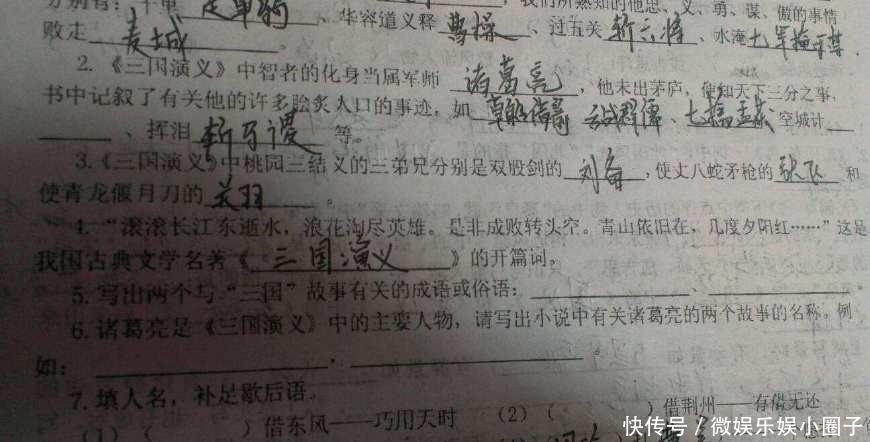 分别有：千里 走单骑 、华容道义释 曹操 、过五关 斩六将 、水淹七军
败走 麦城 。
2.《三国演义》中智者的化身当属军师 诸葛亮 ，他未出茅庐，便知天下三分之事，
书中记叙了有关他的许多脍炙人口的事迹，如 草船借箭 舌战群儒 、七擒孟获 空城计
、挥泪 斩马谡 等。
3.《三国演义》中桃园三结义的三弟兄分别是双股剑的 刘备 ，使丈八蛇矛枪的 张飞 和
使青龙偃月刀的 关羽 。
4.“滚滚长江东逝水，浪花淘尽英雄。是非成败转头空。青山依旧在，几度夕阳红……”这是
我国古典文学名著《 三国演义 》的开篇词。
5.写出两个与“三国”故事有关的成语或俗语：、
6.诸葛亮是《三国演义》中的主要人物，请写出小说中有关诸葛亮的两个故事的名称。例
如：。
7.填人名，补足歇后语。
(1)（ ）借东风——巧用天时 (2)（ ）借荆州——有借无还
快传号 / 微娱乐娱小圈子